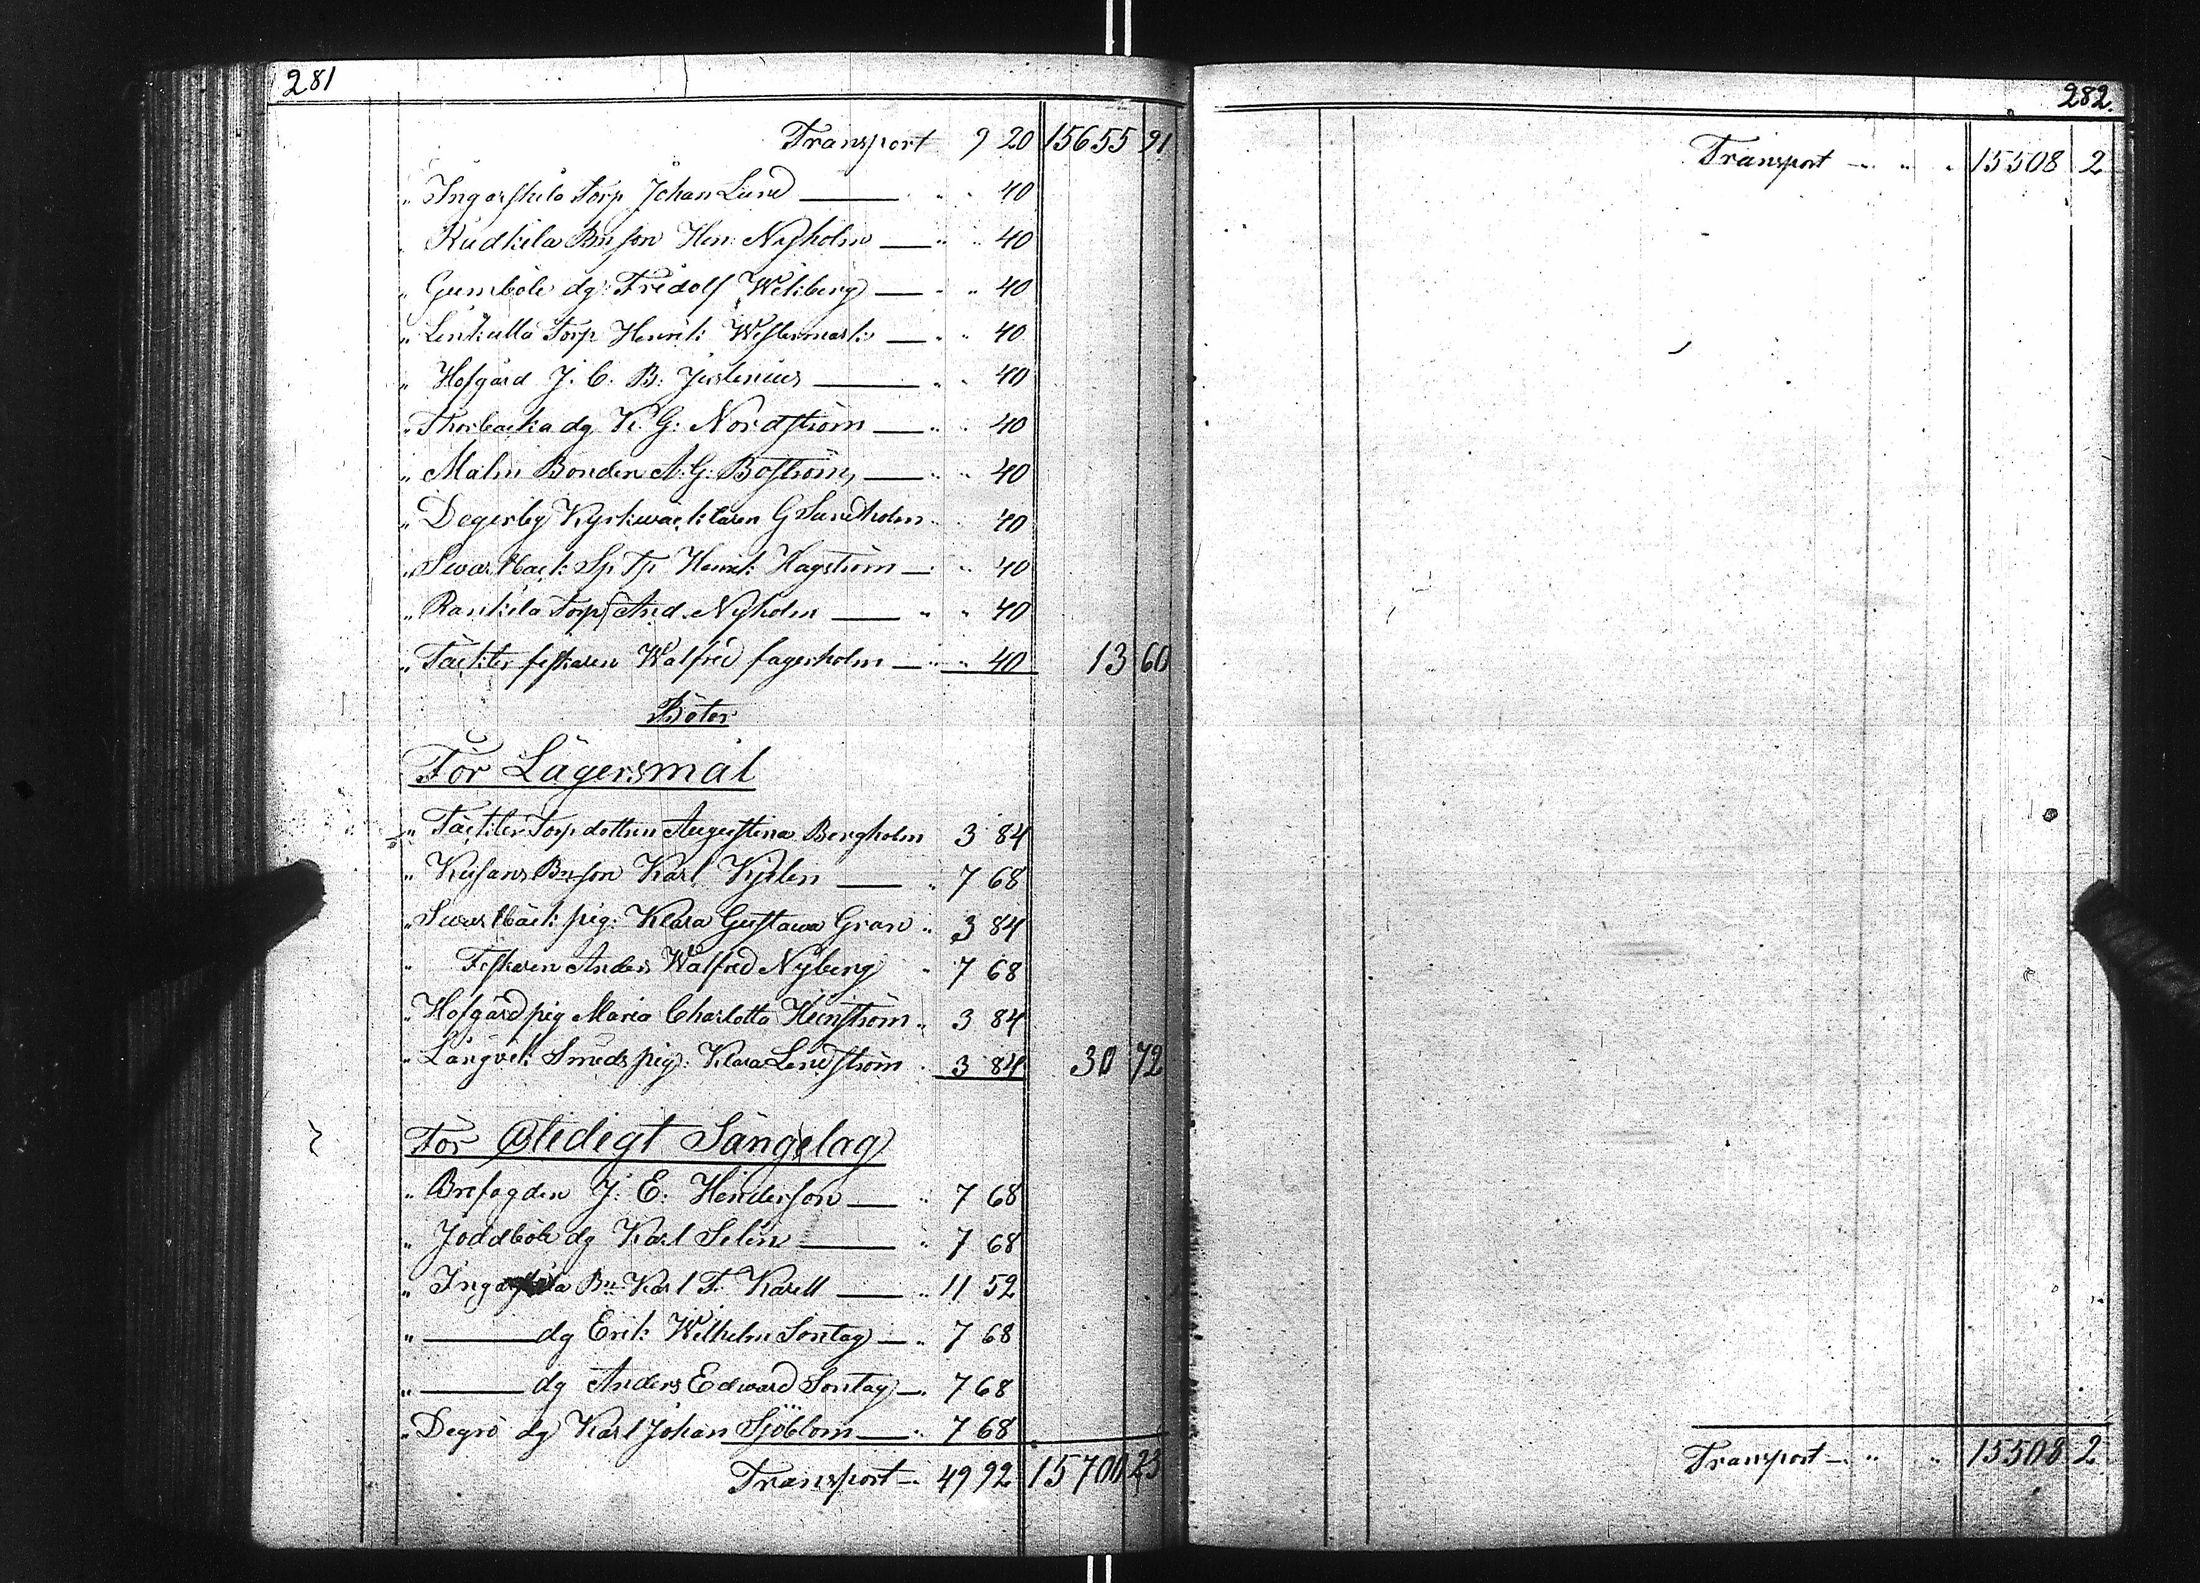 281
Transport 9 20 15655 91
„ Ingarskila Torp Johan Lund — „ „ 40
„ Rudkila Bnson Hen: Nyholm — „ „ 40
„ Gumböle dg: Fridolf Wikberg — „ „ 40
„ Linkulla Torp Henrik Westermark — „ „ 40
„ Hofgård J. C. B: Juslenius — „ „ 40
„ Thorbacka dg K. G: Nordström — „ „ 40
„ Malm Bonden A. G: Boström, — „ „ 40
„ Degerby Kyrkwäcktaren G Sundholm „ „ 40
„ Swartbäck Sp Tp Henrik Hagström — „ „ 40
„ Rankila Torp And. Nyholm — „ „ 40
„ Täckter fiskaren Walfrid fagerholm — „ „ 40 13 60
Böter
För Lägersmål
„ Täckter Torp dottren Augustina Bergholm 3 84
„ Kusans Bnson Karl Kjilen — „ 7 68
„ Swartbäck pig: Klara Gustawa Gran „ 3 84
„ Fiskaren Anders Walfred Nyberg „ 7 68
„ Hofgård pig Maria Charlotta Heinström „ 3 84
„ Långvik Smeds pig: Klara Lindström „ 3 84 30 72
För Oledigt Sängelag
„ Brofogden J: E: Henderson — „ 7 68
„ Joddböle dg Karl Selin — „ 7 68
„ Ingarskila Bn Karl F. Karell — „ 11 52
„ — dg Erik Wilhelm Sontag — „ 7 68
„ — dg Anders Edward Sontag — „ 7 68
„ Degrö dg Karl Johan Sjöblom — „ 7 68
Transport — „ 49 92 15700 23
282.
Transport — „ „ „ 15508 2
Transport — „ „ 15508 2